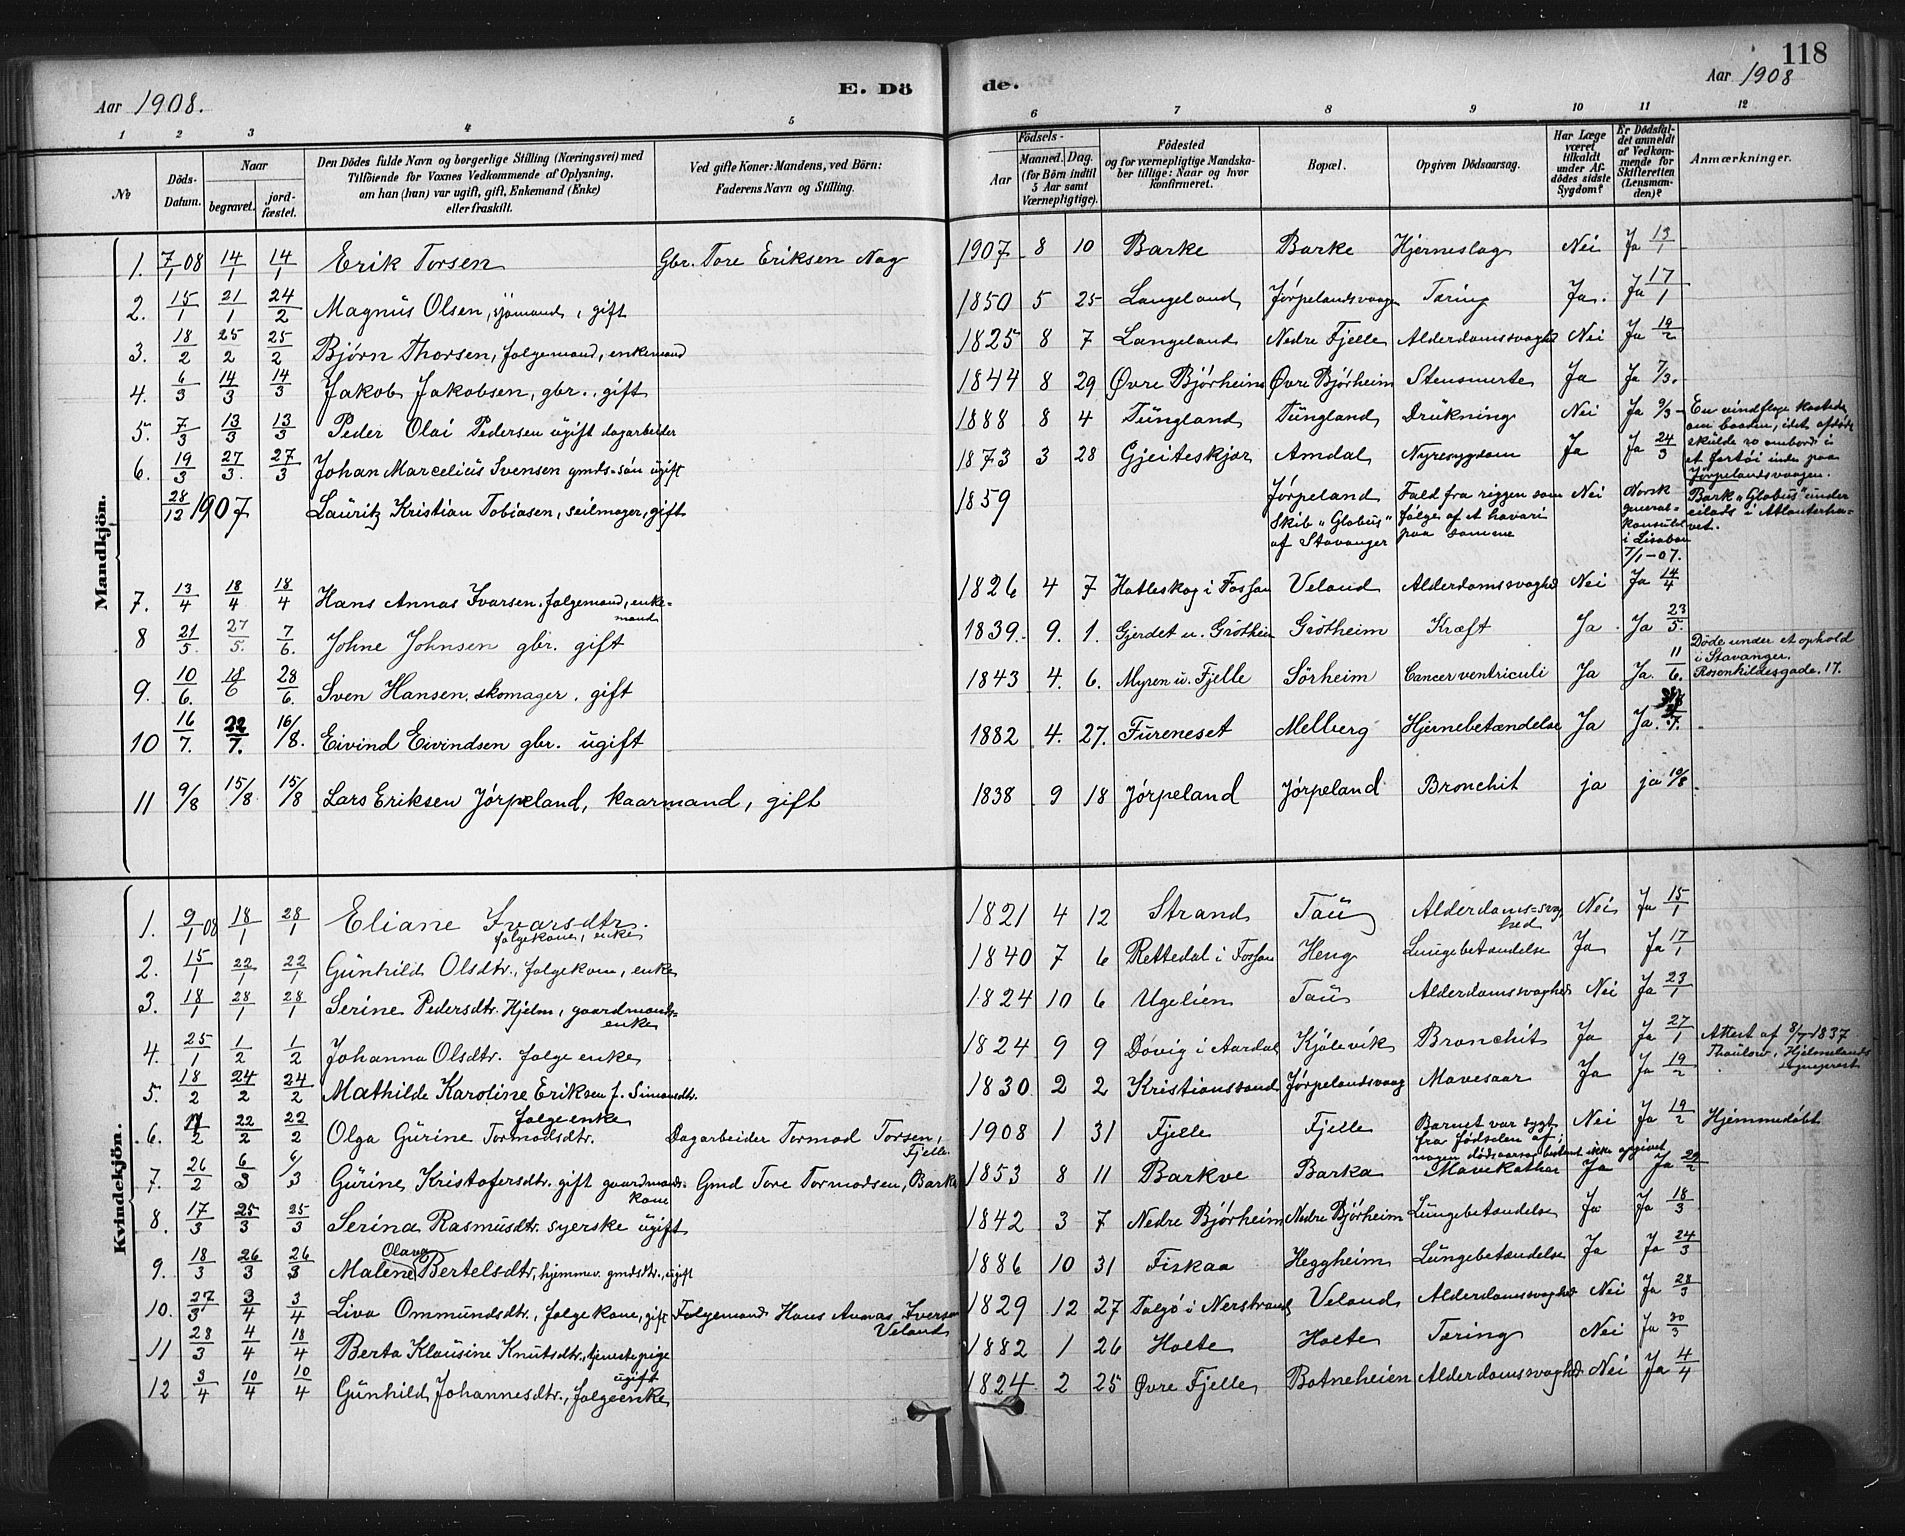 118
Aar 1908.
E. Dö
de.
Aar 1908
1 2 3 4 5 6 7 8 9 10 11 12
№
Döds-Datum.
Naar
begravet.
jord-fæstet.
Den Dödes fulde Navn og borgerlige Stilling (Næringsvei) med
Tilföiende for Voxnes Vedkommende af Oplysning,
om han (hun) var ugift, gift, Enkemand (Enke)
eller fraskilt.
Ved gifte Koner: Mandens, ved Börn:
Faderens Navn og Stilling.
Födsels-
Aar
Maaned. Dag.
(for Börn indtil
5 Aar samt
Værnepligtige).
Födested
og for værnepligtige Mandska-
ber tillige: Naar og hvor
konfirmeret.
Bopæl.
Opgiven Dödsaarsag.
Har Læge
været
tilkaldt
under Af-
dödes sidste
Sygdom?
Er Dödsfal-
det anmeldt
af Vedkom-
mende for
Skifteretten
(Lensman-
den)?
Anmærkninger.
Mandkjön.
1. 7/1 08 14/1 14/1 Erik Torsen Gbr. Tore Eriksen Nag 1907 8 10 Barke Barke Hjerneslag Nei Ja 13/1
2. 15/1 21/1 24/2 Magnus Olsen, sjömand, gift 1850 5 25 Langeland Jörpelandsvaagen Tæring Ja. Ja 17/1
3. 18/2 25/2 25/2 Bjørn Thorsen, folgemand, enkemand 1825 8 7 Langeland Nedre Fjelle Alderdomssvaghed Nei Ja 19/2
4. 6/3 14/3 14/3 Jakob Jakobsen, gbr., gift 1844 8 29 Øvre Bjørheim Øvre Bjørheim Stensmerte Ja Ja 7/3.
5. 7/3 13/3 13/3 Peder Olai Pedersen ugift dagarbeider 1888 8 4 Tungland Tungland Drukning Nei Ja 9/3 En vindflage kastede
om baaden, idet afdöde
skulde ro ombord i
et fartöi inde paa
Jørpelandsvaagen.
6. 19/3 27/3. 27/3 Johan Marcelius Svensen gmds-sön ugift 1873 3 28 Gjeiteskjær Amdal Nyresygdom Ja Ja 24/3
28/12 1907 Lauritz Kristian Tobiasen, seilmager, gift 1859 Jørpeland
Skib "Globus"
af Stavanger
Fald fra riggen som
følge af et havari
paa samme
Nei Norsk
general-
konsulat
i Lisabon
7/1-07.
Bark "Globus" under
seilads i Atlanterha-
vet.
7. 13/4 18/4 18/4 Hans Annas Ivarsen, folgemand, enke-
mand 1826 4 7 Hatleskog i Fossan Veland Alderdomssvaghed Nei Ja 14/4
8 21/5. 27/5. 7/6. Johne Johnsen gbr. gift 1839. 9. 1. Gjerdet u. Grötheim Grötheim Kræft Ja Ja 23/5.
9. 10/6. 18/6 28/6. Sven Hansen, skomager, gift 1843 4. 6. Myren u. Fjelle Sörheim Cancer ventriculi Ja Ja. 11/6. Döde under et ophold
i Stavanger.
Rosenkildesgade. 17.
10 16/7. 22/7. 16/8. Eivind Eivindsen gbr. ugift 1882 4. 27. Fureneset Melberg Hjernebetændelse Ja Ja.
11 9/8 15/8 15/8 Lars Eriksen Jörpeland, kaarmand, gift 1838 9 18 Jörpeland Jörpeland Bronchit ja ja 10/8
Kvindekjön.
1. 9/1 08 18/1 28/1 Eliane Ivarsdtr.
folgekone, enke 1821 4 12 Strand Tau Alderdoms-svag
hed Nei Ja 15/1
2. 15/1 22/1 22/1 Gunhild Olsdtr., folgekone, enke 1840 7 6 Rettedal i Fossan Heng Lungebetændelse Ja Ja 17/1
3. 18/1 28/1 28/1 Serine Pedersdtr. Hjelm, gaardmands-
enke 1824 10 6 Ugelien Tau Alderdomssvaghed Nei Ja 23/1
4. 25/1 1/2 1/2 Johanna Olsdtr. folge enke 1824 9 9 Døvig i Aardal Kjölevik Bronchit Ja Ja 27/1 Attest af 8/7 1837
Thaulow, Hjelmelands
sogneprest
5. 18/2 24/2 24/2 Mathilde Karoline Eriksen f. Simonsdtr.
folge enke 1830 2 2 Kristianssand Jørpelandsvaag Mavesaar Ja Ja 19/2
6. 17/2 22/2 22/2 Olga Gurine Tormodsdtr. Dagarbeider Tormod Torsen,
Fjelle 1908 1 31 Fjelle Fjelle Barnet var sygt
fra fødselen af;
nogen dödsaarsag bestemt ikke opgivet Nei Ja 19/2 Hjemmedöbt
7. 26/2 6/3 6/3 Gurine Kristofersdtr. gift gaardmands-
kone Gmd Tore Tormodsen, Barke 1853 8 11 Barkve Barka Mavekathar Ja Ja 29/2
8. 17/3 25/3 25/3 Serina Rasmusdtr. syerske ugift 1842 3 7 Nedre Bjørheim Nedre Bjørheim Lungebetændelse Ja Ja 18/3
9. 18/3 26/3 26/3 Malene Olava Bertelsdtr, hjemmev. gmdsdtr., ugift 1886 10 31 Fiskaa Heggheim Lungebetændelse Ja Ja 24/3
10. 27/3 3/4 3/4 Liva Ommundsdtr., folgekone, gift Folgemand Hans Annas Iversen
Veland 1829 12 27 Talgö i Nerstrand Veland Alderdomssvaghed Nei Ja 28/3
11 28/3 4/4 18/4 Berta Klausine Knutsdtr., tjenestepige
ugift 1882 1 26 Holte Holte Tæring Nei Ja 30/3
12 3/4 10/4 10/4 Gunhild Johannesdtr., folgeenke 1824 2 25 Øvre Fjelle Botneheien Alderdomssvaghed Nei Ja 4/4